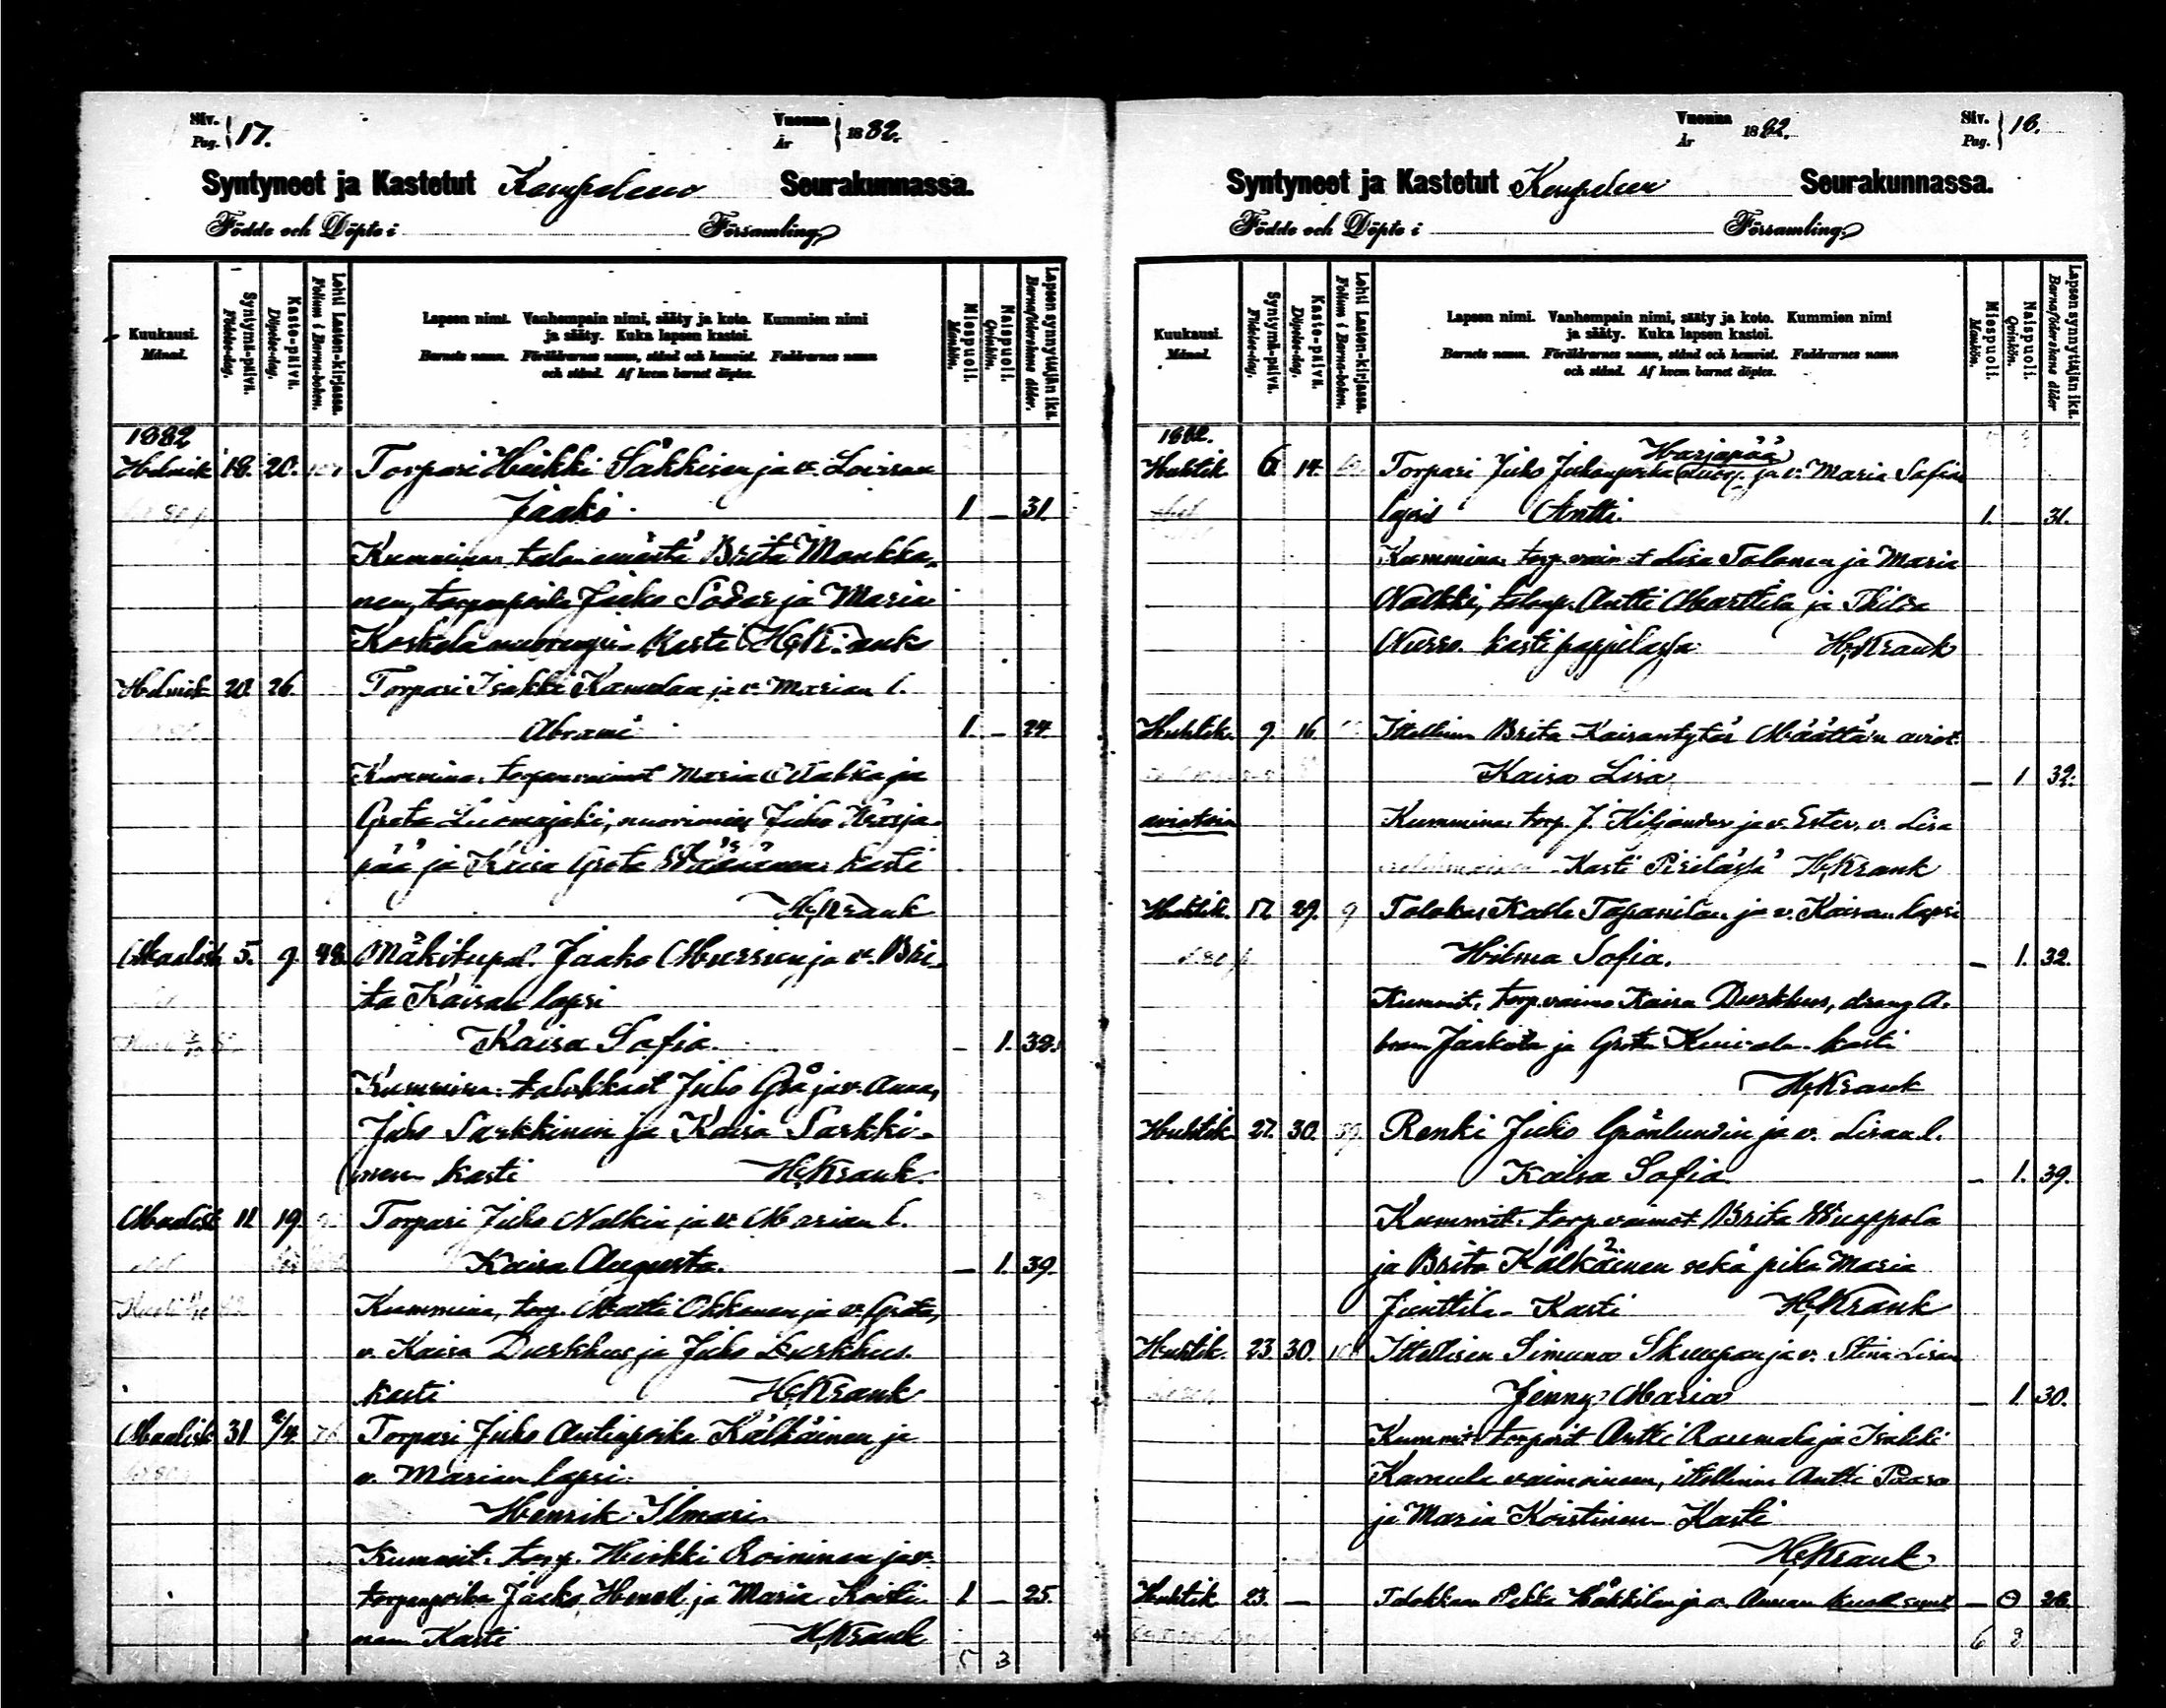 Siv. Pag. 17.
Vuonna År 1882.
Syntyneet ja Kastetut Kempeleen Seurakunnassa.
Födde och Döpte i Församling.
Kuukausi. Månad.
Syntymä-päivä. Födelse-dag.
Kaste-päivä. Döpelse-dag.
Lehti Lasten-kirjassa. Folium i Barna-boken.
Lapsen nimi. Vanhempain nimi, sääty ja koto. Kummien nimi
ja sääty. Kuka lapsen kastoi.
Barnets namn. Föräldrarnes namn, stånd och hemvist. Faddrarnes namn
och stånd. Af hvem barnet döptes.
Miespuoli. Mankön.
Naispuoli. Qvinkön.
Lapsen synnyttäjän ikä. Barnaföderskans ålder.
1882
Helmik 18. 20. Torpari Heikki Säkkisen ja v. Loviisan
Jaako 1 — 31.
Kummina: talon emäntä Brita Maukka-
nen, torpanpoika Juho Söder ja Maria
Koskela nuorempi. Kasti H. Krank
Helmik 20. 26. Torpari Isakki Kamulan ja v. Marian l.
Abrami 1. — 24.
Kummina: torpanvaimot Maria
Greta Luomajoki, nuorimies Juho Harja-
pää ja Kaisa Greta Väänänen Kasti
H. Krank
Maalisk 5. 9. 48. Mäkitupal. Jaako Mursun ja v. Bri-
ta Kaisan lapsi
Kaisa Sofia. — 1. 32.
Kummina: talokkaat Juho Grå ja v. Anna,
Juho Sarkkinen ja Kaisa Sarkki-
nen Kasti H. Krank.
Maalisk 11. 19. Torpari Juho Nalkin ja v. Marian l.
Kaisa Augusta. — 1. 39.
Kummina, torp. Matti Okkonen ja v. Greta,
v. Kaisa Durkhus ja Juho Durkhus.
kasti H. Krank
Maalisk 31 2/4. Torpari Juho Antinpoika Kälkäinen ja
v. Marian lapsi
Henrik Ilmari
Kummit: torp. Heikki Roininen ja v.
torpanpoika Jaako ja Maria Koisti-
nen Kasti H. Krank 1 — 25.
5 3
Vuonna År 1882.
Siv. Pag. 18.
Syntyneet ja Kastetut Kempeleen Seurakunnassa.
Födde och Döpte i Församling.
Kuukausi. Månad.
Syntymä-päivä. Födelse-dag.
Kaste-päivä. Döpelse-dag.
Lehti Lasten-kirjassa. Folium i Barna-boken.
Lapsen nimi. Vanhempain nimi, sääty ja koto. Kummien nimi
ja sääty. Kuka lapsen kastoi.
Barnets namn. Föräldrarnes namn, stånd och hemvist. Faddrarnes namn
och stånd. Af hvem barnet döptes.
Miespuoli. Mankön.
Naispuoli. Qvinkön.
Lapsen synnyttäjän ikä. Barnaföderskans ålder
1882.
Harjapää
Huhtik. 6. 14. Torpari Juho Juhonpoika ja v. Maria Sofian
lapsi Antti. 1. — 31.
Kummina: torp. vaimot Lisa Tolonen ja Maria
Nalkki, talonp. Antti Marttila ja Thilda
Nurro. kasti pappilassa H. Krank
Huhtik. 9. 16. Itellinen Brita Kaisantytär Määttän aviot.
Kaisa Lisa — 1 32.
aviotoin Kummina: torp. J. Kiljander ja v. Ester. v. Lisa
Kasti Pirilässä H. Krank
Huhtik. 17. 29. 9 Talokas Kalle Tapanilan ja v. Kaisan lapsi
Hilma Sofia. — 1. 32.
Kummit: torp. vaimo Kaisa Durkhus, dräng A-
bram Jaakola ja Greta kasti
H. Krank
Huhtik. 27. 30. 59. Renki Juho Grönlundin ja v. Lisan l.
Kaisa Sofia. — 1. 39.
Kummit: torp. vaimot Brita Wuoppola
ja Brita Kälkäinen sekä piika Maria
Junttila. Kasti H. Krank
Huhtik. 23. 30. Itellisen Simuna Skuupan ja v. Stina Lisan
Jenny Maria — 1 30.
Kummit: torparit Antti Raumala ja Isakki
Kamula vaimoineen, itellinen Antti Paaso
ja Maria Koistinen Kasti
H. Krank
Huhtik 23. — Talokkaan Pekka Häkkilän ja v. Annan kuoll. synt — 26.
6 8